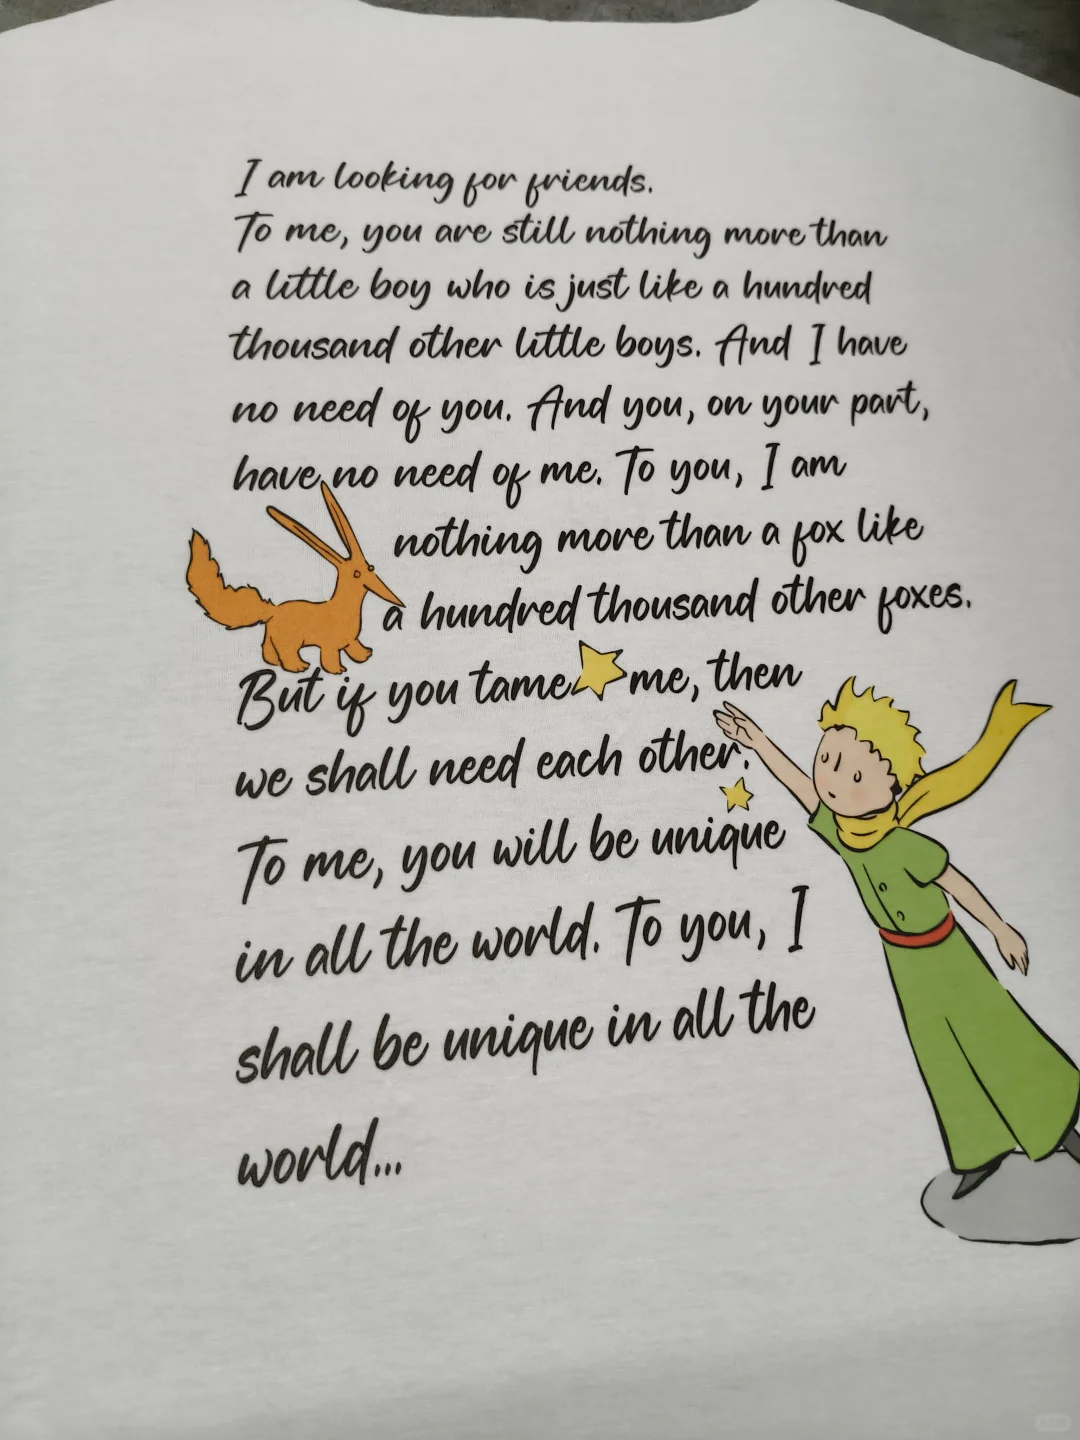 I am looking for friends.
To me, you are still nothing more than
a little boy who is just like a hundred
thousand other little boys. And I have
no need of you. And you, on your part,
have no need of me. To you, I am
nothing more than a fox like
a hundred thousand other foxes.
But if you tame me, then
we shall need each other.
To me, you will be unique
in all the world. To you, I
shall be unique in all the
world...